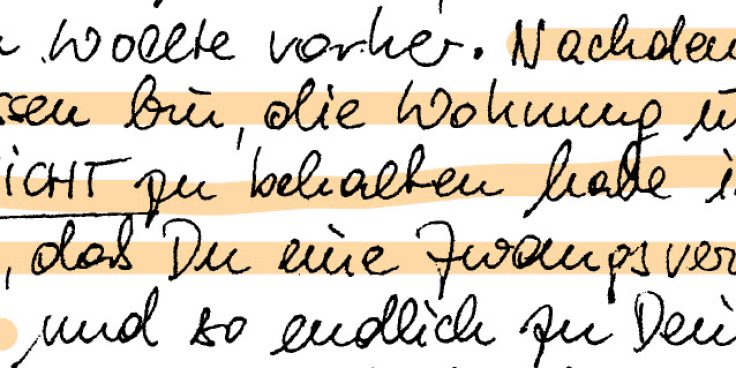 n wollte vorher. Nachdem
ssen bin, die Wohnung u
ICHT zu behalten habe i
, daß Du eine Zwangsver
, und so endlich zu Dein